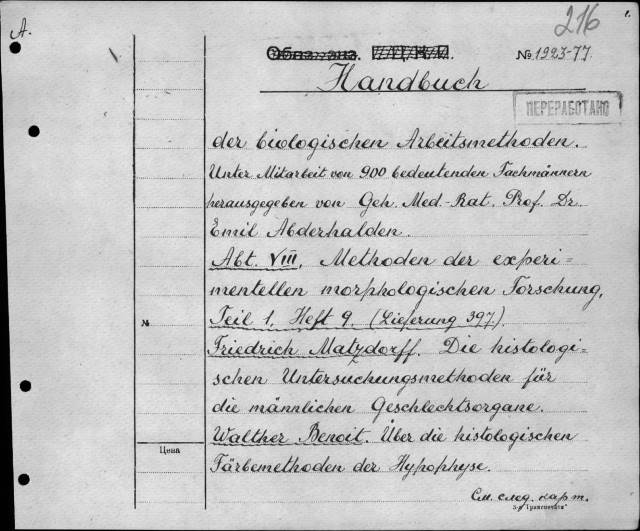 A.
216
№ 1923-77.
Handbuch
ПЕРЕРАБОТАНО
der biologischen Arbeitsmethoden.
Unter Mitarbeit von 900 bedeutenden Fachmännern
herausgegeben von Geh. Med.-Rat. Prof. Dr.
Emil Abderhalden.
Abt. VIII, Methoden der experi=
mentellen morphologischen Forschung,
№
Teil 1, Heft 9. (Lieferung 397.).
Friedrich Matzdorff. Die histologi=
schen Untersuchungsmethoden für
die männlichen Geschlechtsorgane.
Walther Benoit. Über die histologischen
Цена
Färbemethoden der Hypophyse.
См. след. карт.